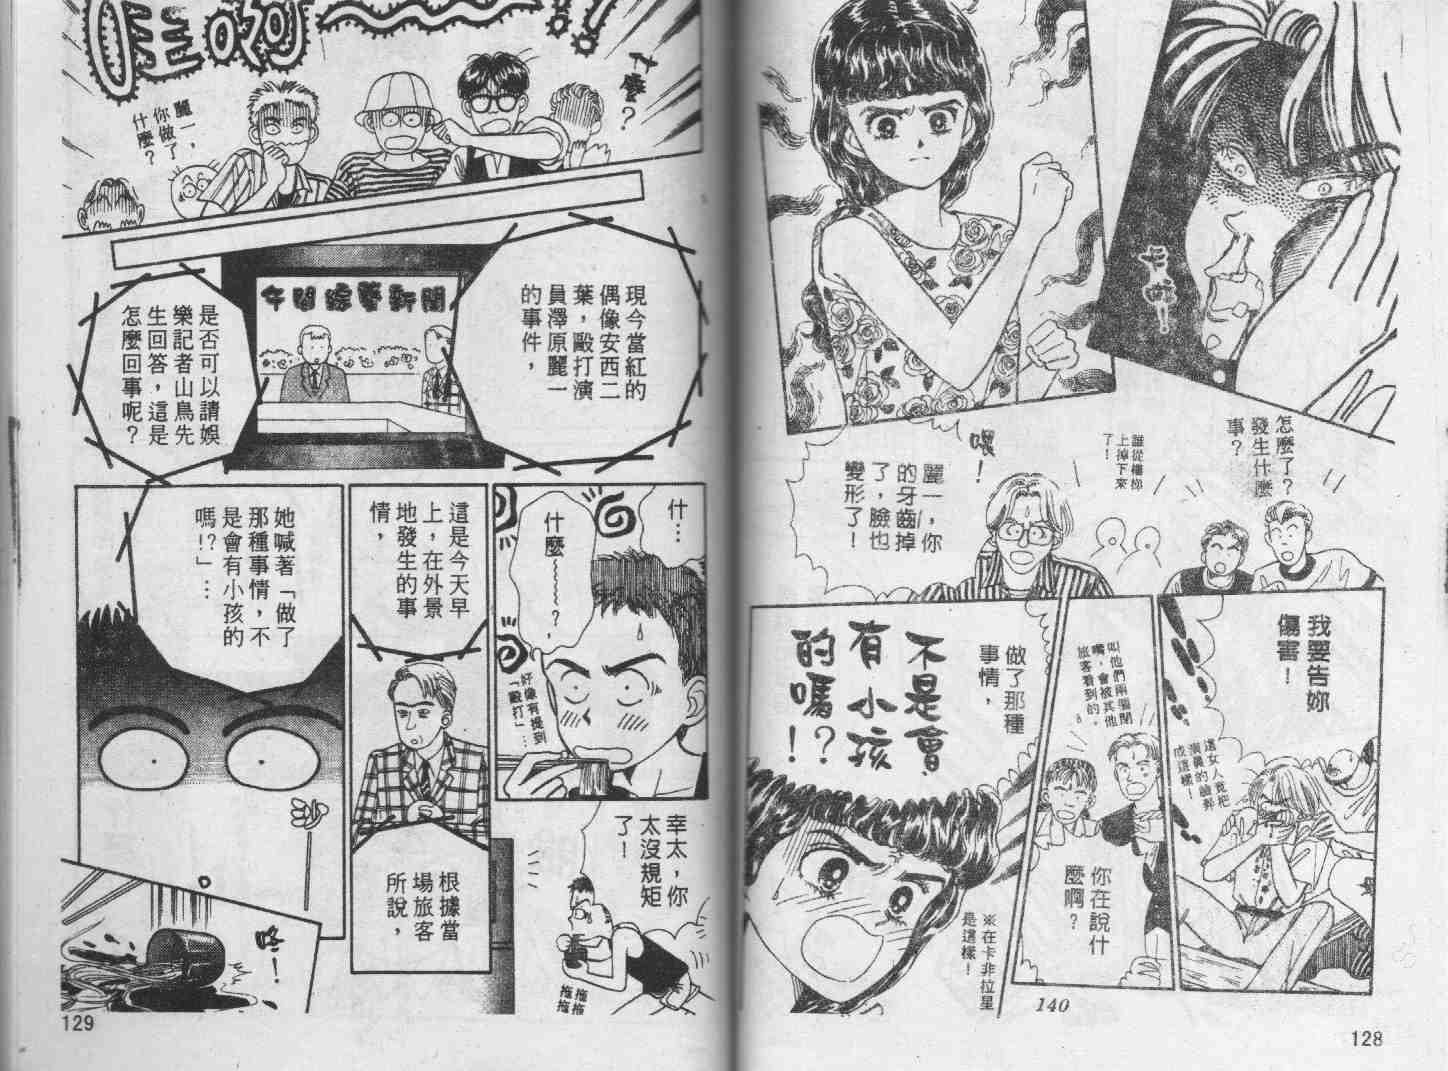 怎麼了?
發生什麼
事?
誰從樓梯
上掉下來
了!
喂!
麗一,你
的牙齒掉
了,臉也
變形了!
我要告妳
傷害!
這女人竟把
演員的臉弄
成這樣!
叫他們兩個閉
嘴,會被其他
旅客看到的。
你在說什
麼啊?
做了那種
事情,
不是會
有小孩
的嗎!?
※在卡非拉星
是這樣!
140
128
哇啊~~!!
什麼?
麗一,
你做了
什麼?
現今當紅的
偶像安西二
葉,毆打演
員澤原麗一
的事件,
午間綜藝新聞
是否可以請娛
樂記者山鳥先
生回答,這是
怎麼回事呢?
什…
什麼~~~?,
好像有提到
「毆打」…
幸太,你
太沒規矩
了!
拖拖
拖拖
這是今天早
上,在外景
地發生的事
情,
根據當
場旅客
所說,
她喊著「做了
那種事情,不
是會有小孩的
嗎!?」…
咚!
129